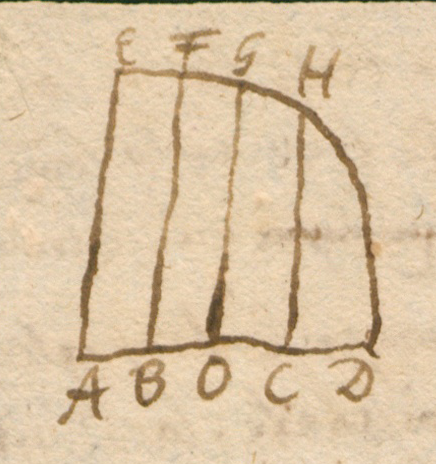 E F G H
A B O C D